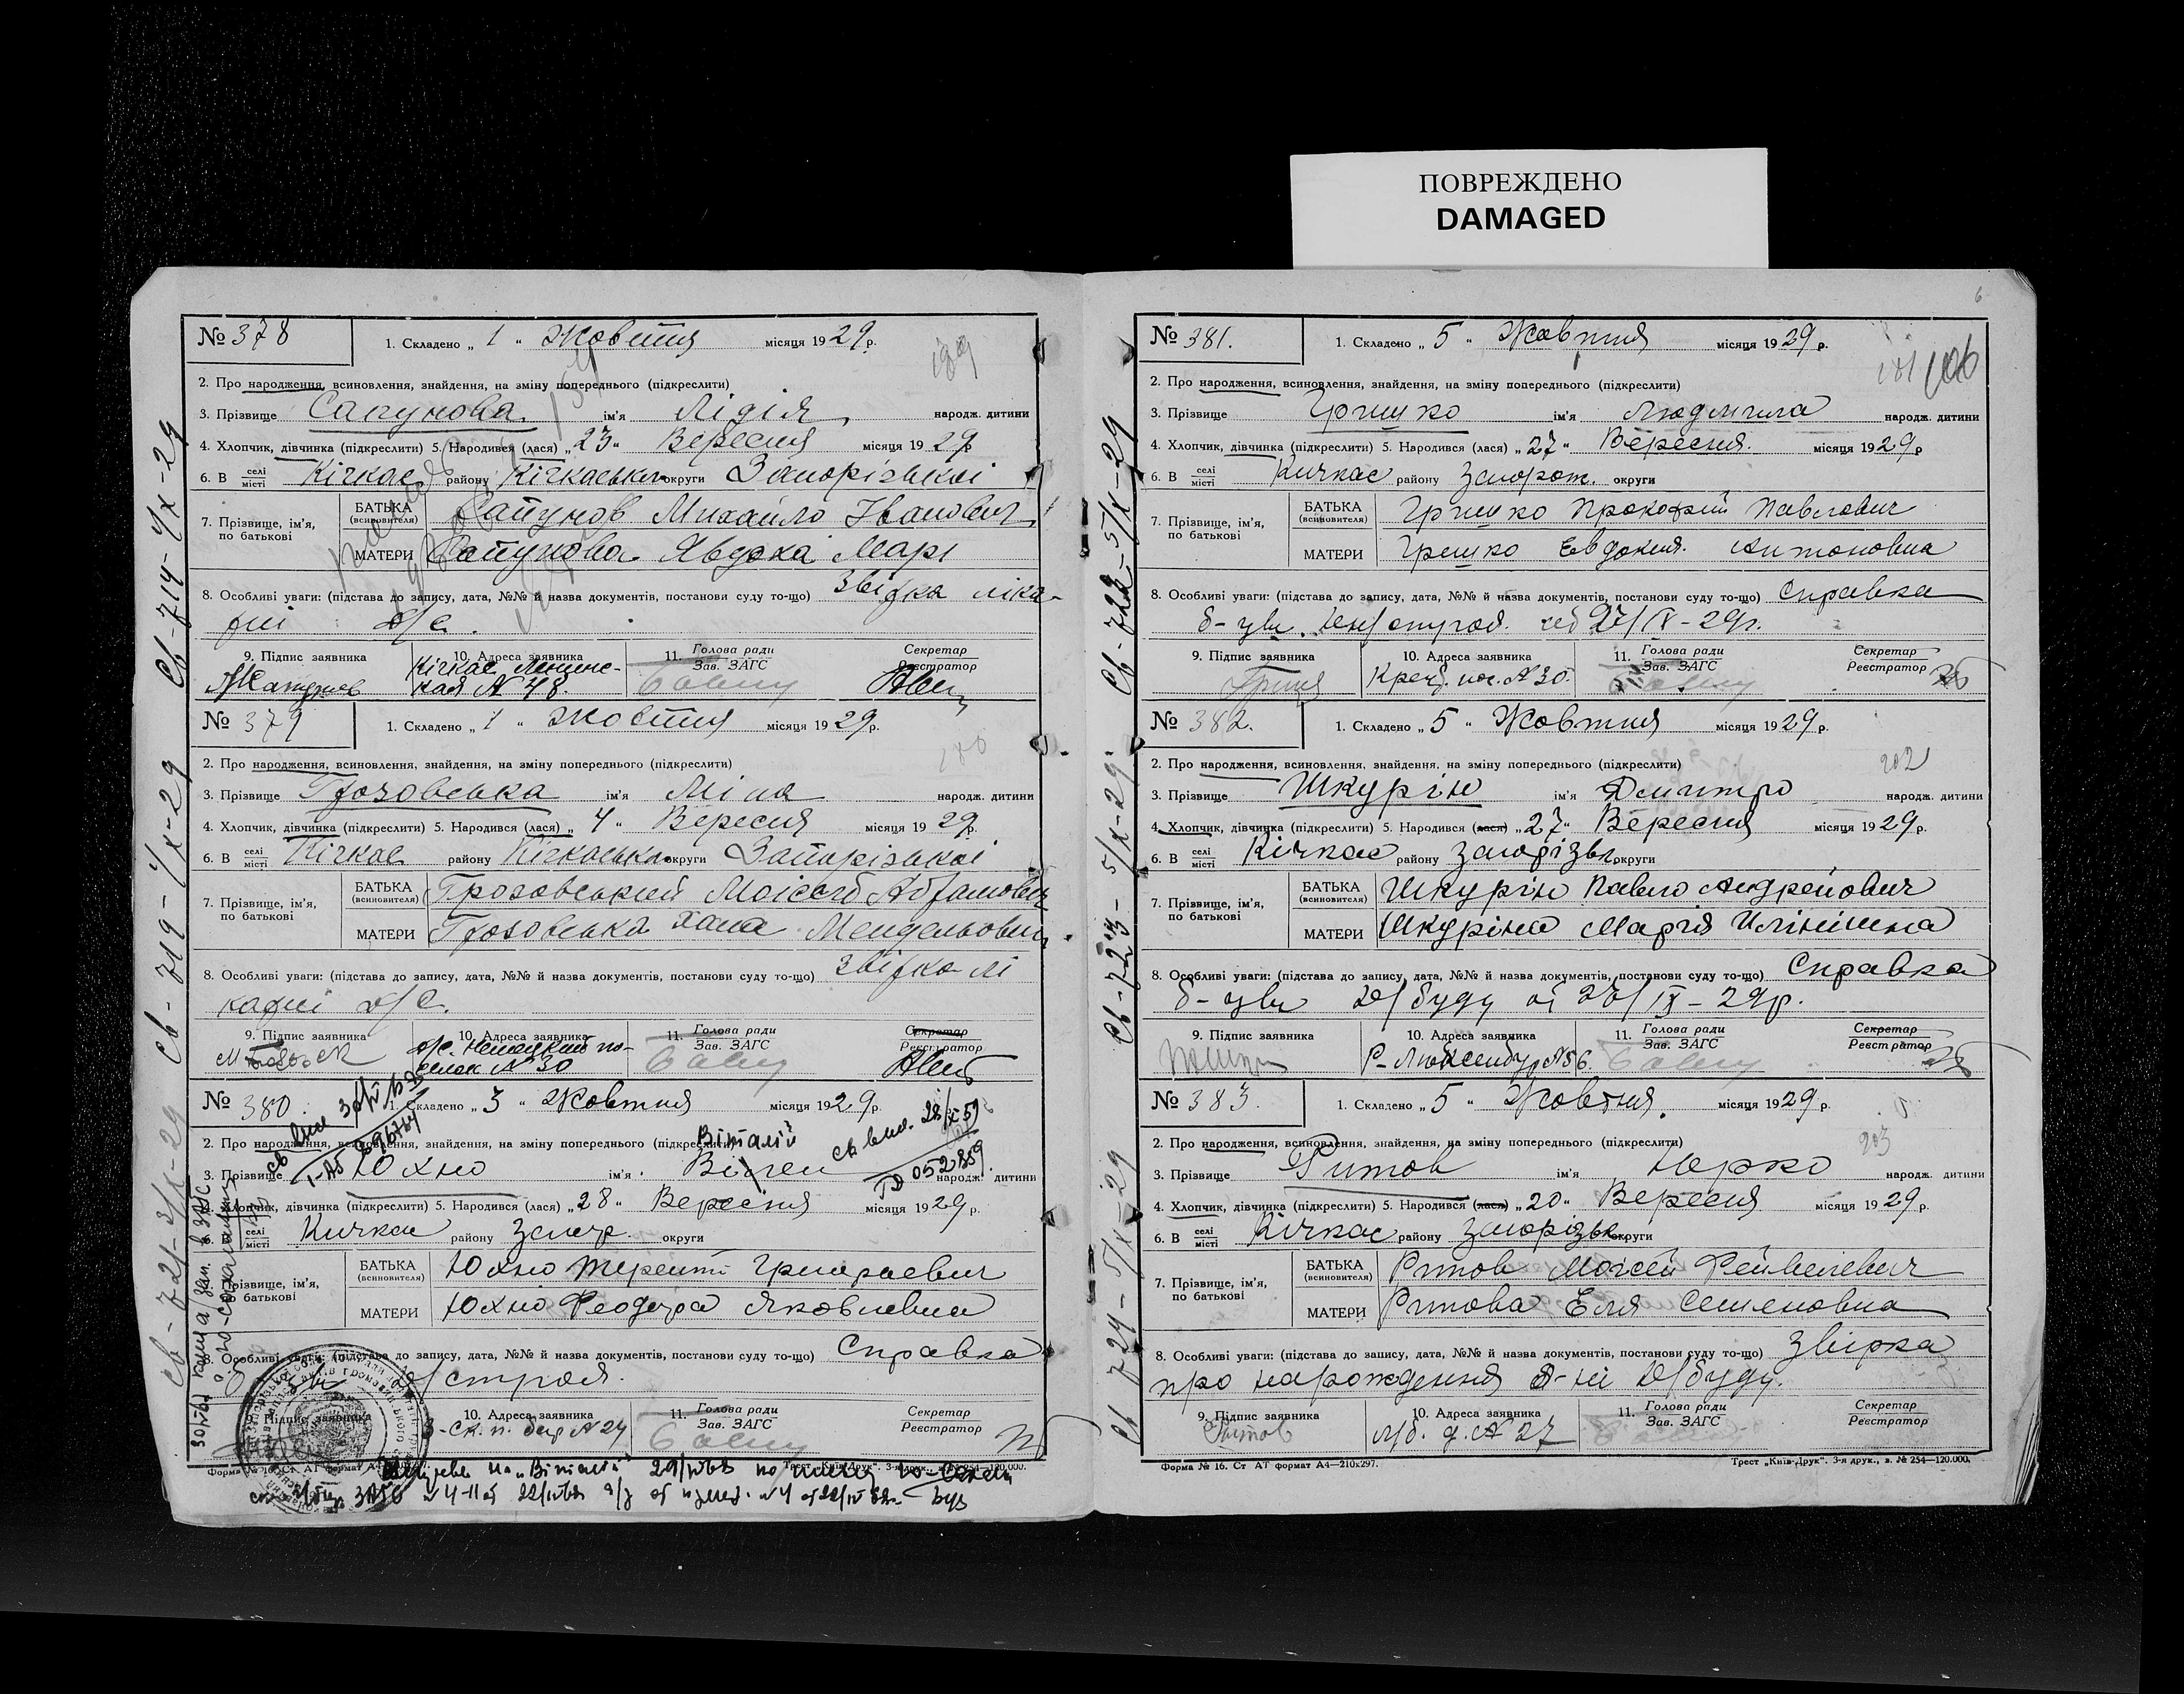 ПОВРЕЖДЕНО
DAMAGED
№ 378
1. Складено „ 1 “ Жовтня місяця 1929 р.
2. Про народження, всиновлення, знайдення, на зміну попереднього (підкреслити)
3. Прізвище Сапунова ім'я Лідія народж. дитини
4. Хлопчик, дівчинка (підкреслити) 5. Народився (лася) „ 23 “ Вересня місяця 1929 р.
6. В селі місті Кічкас району Кічкаської округи Запорізької
7. Прізвище, ім'я, по батькові
БАТЬКА (всиновителя) Сапунов Михайло Іванович
МАТЕРИ Сапунова Явдоха Марі
8. Особливі уваги: (підстава до запису, дата, №№ й назва документів, постанови суду то-що) Звідка ліка-
рні д/с.
9. Підпис заявника
10. Адреса заявника Кічкас Ленинс-
кая № 48.
11. Голова ради Зав. ЗАГС
Секретар Реєстратор
№ 379
1. Складено „ 1 “ Жовтня місяця 1929 р.
2. Про народження, всиновлення, знайдення, на зміну попереднього (підкреслити)
3. Прізвище Грозовська ім'я Міна народж. дитини
4. Хлопчик, дівчинка (підкреслити) 5. Народився (лася) „ 4 “ Вересня місяця 1929 р.
6. В селі місті Кічкас району Кічкаської округи Запорізької
7. Прізвище, ім'я, по батькові
БАТЬКА (всиновителя) Грозовський Абрамович
МАТЕРИ Грозовська Хана
8. Особливі уваги: (підстава до запису, дата, №№ й назва документів, постанови суду то-що) Звідка лі
карні д/с.
9. Підпис заявника
10. Адреса заявника № 30
11. Голова ради Зав. ЗАГС
Секретар Реєстратор
№ 380
1. Складено „ 3 “ Жовтня місяця 1929 р.
2. Про народження, всиновлення, знайдення, на зміну попереднього (підкреслити)
Віталій
3. Прізвище Юхно ім'я народж. дитини
4. Хлопчик, дівчинка (підкреслити) 5. Народився (лася) „ 28 “ Вересня місяця 1929 р.
6. В селі місті Кичкас району Запор. округи
7. Прізвище, ім'я, по батькові
БАТЬКА (всиновителя) Юхно Терентій Григорьевич
МАТЕРИ Юхно Феодора Яковлевна
8. Особливі уваги: (підстава до запису, дата, №№ й назва документів, постанови суду то-що) Справка
9. Підпис заявника
10. Адреса заявника № 24
11. Голова ради Зав. ЗАГС
Секретар Реєстратор
Трест „Київ-Друк“. 3-я друк., в. № 254—120.000.
Св-714-1/X-29
Св-719-1/X-29
Св-721-3/X-29
№ 381.
1. Складено „ 5 “ Жовтня місяця 1929 р.
2. Про народження, всиновлення, знайдення, на зміну попереднього (підкреслити)
3. Прізвище Гришко ім'я Людмила народж. дитини
4. Хлопчик, дівчинка (підкреслити) 5. Народився (лася) „ 27 “ Вересня. місяця 1929 р.
6. В селі місті Кичкас району Запорож. округи
7. Прізвище, ім'я, по батькові
БАТЬКА (всиновителя) Гришко Прокофий Павлович
МАТЕРИ Гришко Евдокия. Антоновна
8. Особливі уваги: (підстава до запису, дата, №№ й назва документів, постанови суду то-що) Справка
27/IX-29г.
9. Підпис заявника
10. Адреса заявника № 30.
11. Голова ради Зав. ЗАГС
Секретар Реєстратор
№ 382.
1. Складено „ 5 “ Жовтня місяця 1929 р.
202
2. Про народження, всиновлення, знайдення, на зміну попереднього (підкреслити)
3. Прізвище Шкурін ім'я Дмитро народж. дитини
4. Хлопчик, дівчинка (підкреслити) 5. Народився (лася) „ 27 “ Вересня місяця 1929 р.
6. В селі місті Кічкас району Запорізьк. округи
7. Прізвище, ім'я, по батькові
БАТЬКА (всиновителя) Шкурін Павло Андрейович
МАТЕРИ Шкуріна Марія
8. Особливі уваги: (підстава до запису, дата, №№ й назва документів, постанови суду то-що) Справка
IX-29р.
9. Підпис заявника
10. Адреса заявника Р-Люксембур №56
11. Голова ради Зав. ЗАГС
Секретар Реєстратор
№ 383.
1. Складено „ 5 “ Жовтня. місяця 1929 р.
203
2. Про народження, всиновлення, знайдення, на зміну попереднього (підкреслити)
3. Прізвище Ритов ім'я народж. дитини
4. Хлопчик, дівчинка (підкреслити) 5. Народився (лася) „ 20 “ Вересня місяця 1929 р.
6. В селі місті Кічкас району Запорізьк. округи
7. Прізвище, ім'я, по батькові
БАТЬКА (всиновителя) Ритов Мойсей
МАТЕРИ Ритова Еля Семеновна
8. Особливі уваги: (підстава до запису, дата, №№ й назва документів, постанови суду то-що) Звірка
про нарождения
9. Підпис заявника Ритов
10. Адреса заявника № 27
11. Голова ради Зав. ЗАГС
Секретар Реєстратор
Форма № 16. Ст АТ формат А4—210x297.
Трест „Київ-Друк“. 3-я друк., в. № 254—120.000.
Св-722-5/X-29
Св-723-5/X-29
Св 724-5/X-29